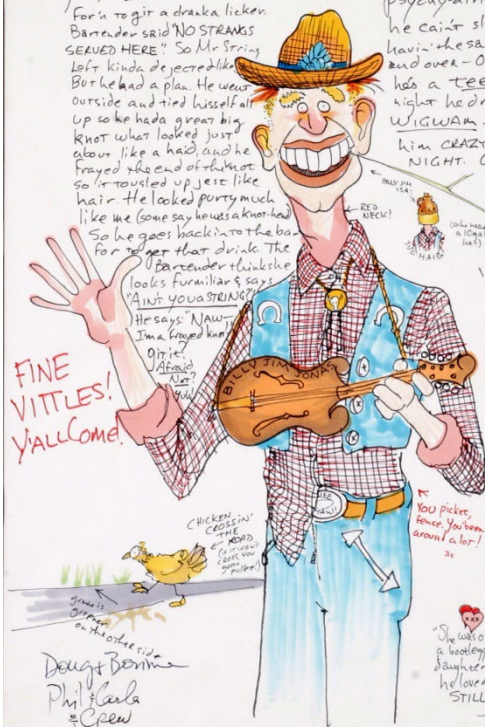 For'n to git a dranka licker.
Bartender said "NO STRANGS
SERVED HERE". So Mr String
Left kinda dejected like
But he had a plan. He went
outside and tied hisself all
up so he had a great big
knot what looked just
about like a haid, and he
frayed the end of the knot
so it tousled up jest like
hair. He looked purty much
like me (some say he was a knot-head)
So he goes back into the bar
for to get that drink. The
Bartender thinks he
looks furmiliar & says
"AIN'T YOU A STRING?"
He says "NAW-
I'm a frayed knot
git it?
Afraid
Not?
Yuk!
he cain't
havin' the sa
and over - O
he's a TEE
night he d
WIGWAM.
him CRAZY
NIGHT.
RED
NECK!
BILLY JIM
HAIG
FINE
VITTLES!
Y'ALL Come!
BILLY JIM JONAS
YEE
HAW!
YOU picket,
fence. You been
around a lot!
CHICKEN
CROSSIN'
THE
ROAD
grass is
greener
on the other side
"She was
a bootlegg
daughter
he loved
STILL
Doug & Bonnie
Phil & Carla
& Crew